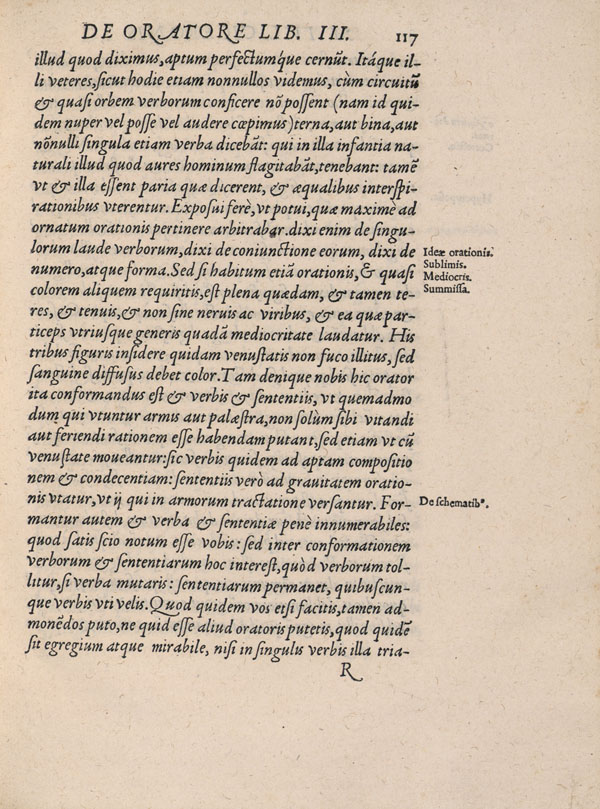 DE ORATORE LIB. III. 117
illud quod diximus, aptum perfectumq́ue cernũt. Itáque il-
li veteres, sicut hodie etiam nonnullos videmus, cùm circuitũ
& quasi orbem verborum conficere nõ possent (nam id qui-
dem nuper vel posse vel audere cœpimus) terna, aut bina, aut
nõnulli singula etiam verba dicebãt: qui in illa infantia na-
turali illud quod aures hominum flagitabãt, tenebant: tamẽ
vt & illa essent paria quæ dicerent, & æqualibus interspi-
rationibus vterentur. Exposui ferè, vt potui, quæ maximè ad
ornatum orationis pertinere arbitrabar. dixi enim de singu-
lorum laude verborum, dixi de coniunctione eorum, dixi de
Ideæ orationis.
numero, atque forma. Sed si habitum etiã orationis, & quasi
Sublimis.
Mediocris.
colorem aliquem requiritis, est plena quædam, & tamen te-
Summissa.
res, & tenuis, & non sine neruis ac viribus, & ea quæ par-
ticeps vtriusque generis quadã mediocritate laudatur. His
tribus figuris insidere quidam venustatis non fuco illitus, sed
sanguine diffusus debet color. Tam denique nobis hic orator
ita conformandus est & verbis & sententiis, vt quemadmo
dum qui vtuntur armis aut palæstra, non solùm sibi vitandi
aut feriendi rationem esse habendam putant, sed etiam vt cũ
venustate moueantur: sic verbis quidem ad aptam compositio
nem & condecentiam: sententiis verò ad grauitatem oratio-
nis vtatur, vt ij qui in armorum tractatione versantur. For-
De schematib⁹.
mantur autem & verba & sententiæ penè innumerabiles:
quod satis scio notum esse vobis: sed inter conformationem
verborum & sententiarum hoc interest, quòd verborum tol-
litur, si verba mutaris: sententiarum permanet, quibuscun-
que verbis vti velis. Quod quidem vos etsi facitis, tamen ad-
monẽdos puto, ne quid esse aliud oratoris putetis, quod quidẽ
sit egregium atque mirabile, nisi in singulis verbis illa tria-
R